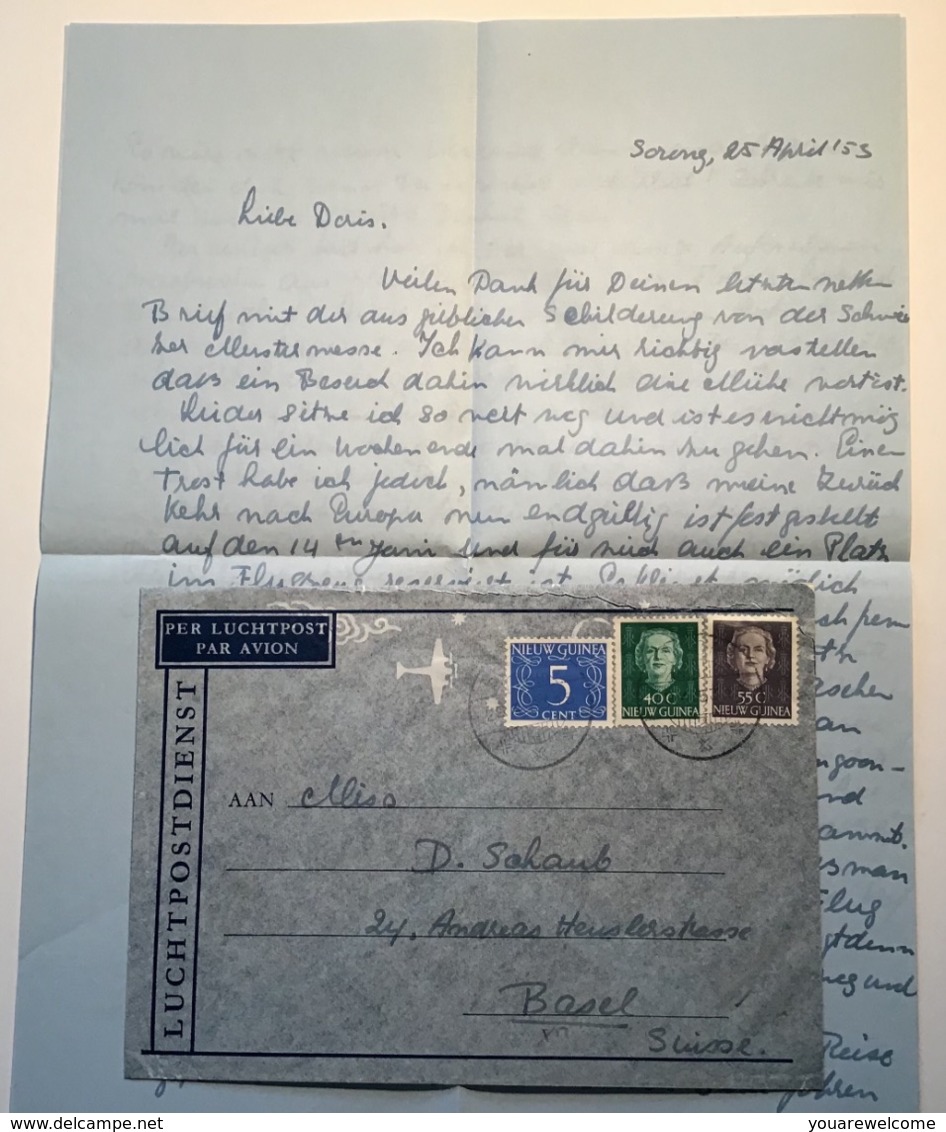 Sorong, 25 April '53
Liebe Doris.
Vielen Dank für Deinen letzten netten
Brief mit der ausgieblichen Schilderung von der Schwei
zer Mustermesse. Ich kann mir richtig vorstellen
daß ein Besuch dahin wirklich die Mühe wert ist.
Leider sitze ich so weit weg und ist es nicht mög
lich für ein Wochenende mal dahin zu gehen. Einen
Trost habe ich jedoch, nämlich daß meine Zurück
kehr nach Europa nun endgültig ist festgestellt
auf den 14ten Juni und für mich auch ein Platz
im Flugzeug reserviert ist.
an
man
Flug
weg und
Reise
PER LUCHTPOST
PAR AVION
LUCHTPOSTDIENST
NIEUW GUINEA
5
CENT
40 C
NIEUW GUINEA
55 C
NIEUW GUINEA
AAN Miss
D. Schaub
24, Andreas Heuslerstrasse
Basel
Suisse.
youarewelcome